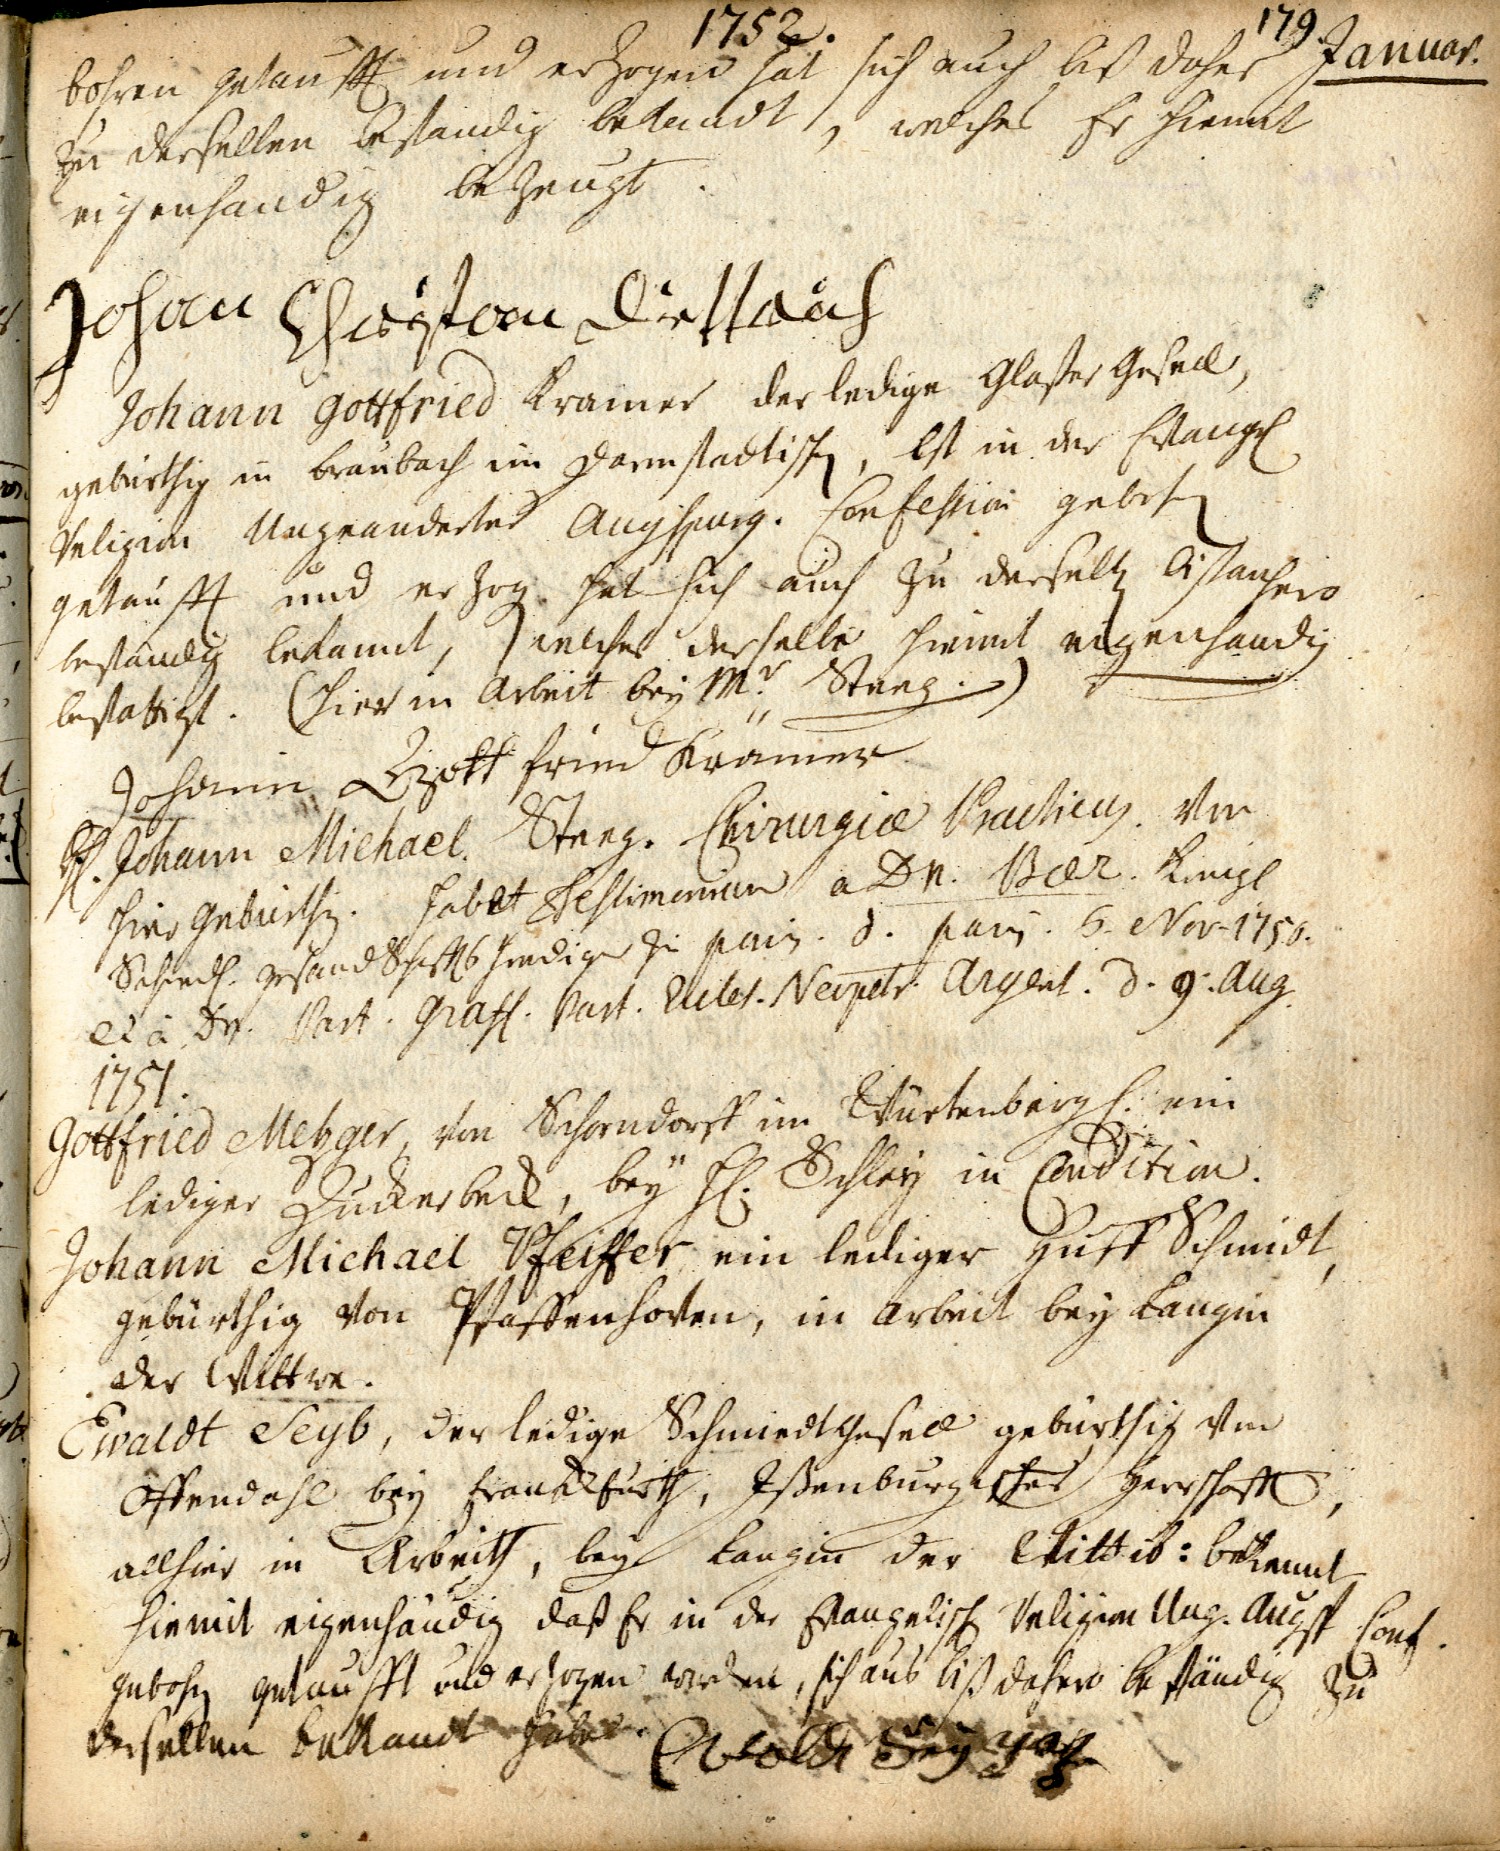 1752.
179 Januar.
bohren getaufft und erzogen hat sich auch biß daher
zu derselben bestandig bekandt, welches Er hiemit
eigenhandig bezeugt.
Johan Christian
Johann Gottfried Kramer der ledige Glaßer Gesell,
gebürthig in Braubach im Darmstadtisch, Ist in der Evangl
Religion Ungeanderter Augspurg. Confession gebohrn
getaufft und erzog. hat sich auch zu derselb bißanhero
bestandig bekannt, welches derselbe hiemit eigenhandig
bestattigt. (hier in Arbeit bey Mr. Steeg.)
Johann Gottfried Krämer
H. Johann Michael Steeg. Chirurgiæ Practicus. Von
hier gebürthig. habet Testimonium a Dn. Bær. Königl
Schwed. gesandschaffts Prediger zu paris. d. paris. 6. Nov. 1750.
et à Dn. Past. Grafl. Past. Eccles. Neopetr. Argent. d. 9. Aug
1751.
Gottfried Metzger, von Schorndorff im Würtenbergl. ein
lediger Zuckerbeck, bey H. Schley in Condition.
Johann Michael Pfeiffer ein lediger Huff Schmidt,
gebürthig von Pfaffenhoven, in Arbeit bey Langin
der Wittwe.
Ewaldt Seyb, der ledige Schmiedt Gesell gebürthig von
Offendahl bey Franckfurth, Isenburgischer Herrschafft,
allhier in Arbeith, bey Langin der Wittib: bekennt
hiemit eigenhändig daß Er in der Evangelisch Religion Ung. Augsp Conf.
gebohrn getaufft und erzogen worden, sich auch bißdahero beständig zu
derselben bekandt habe. Ewaldt